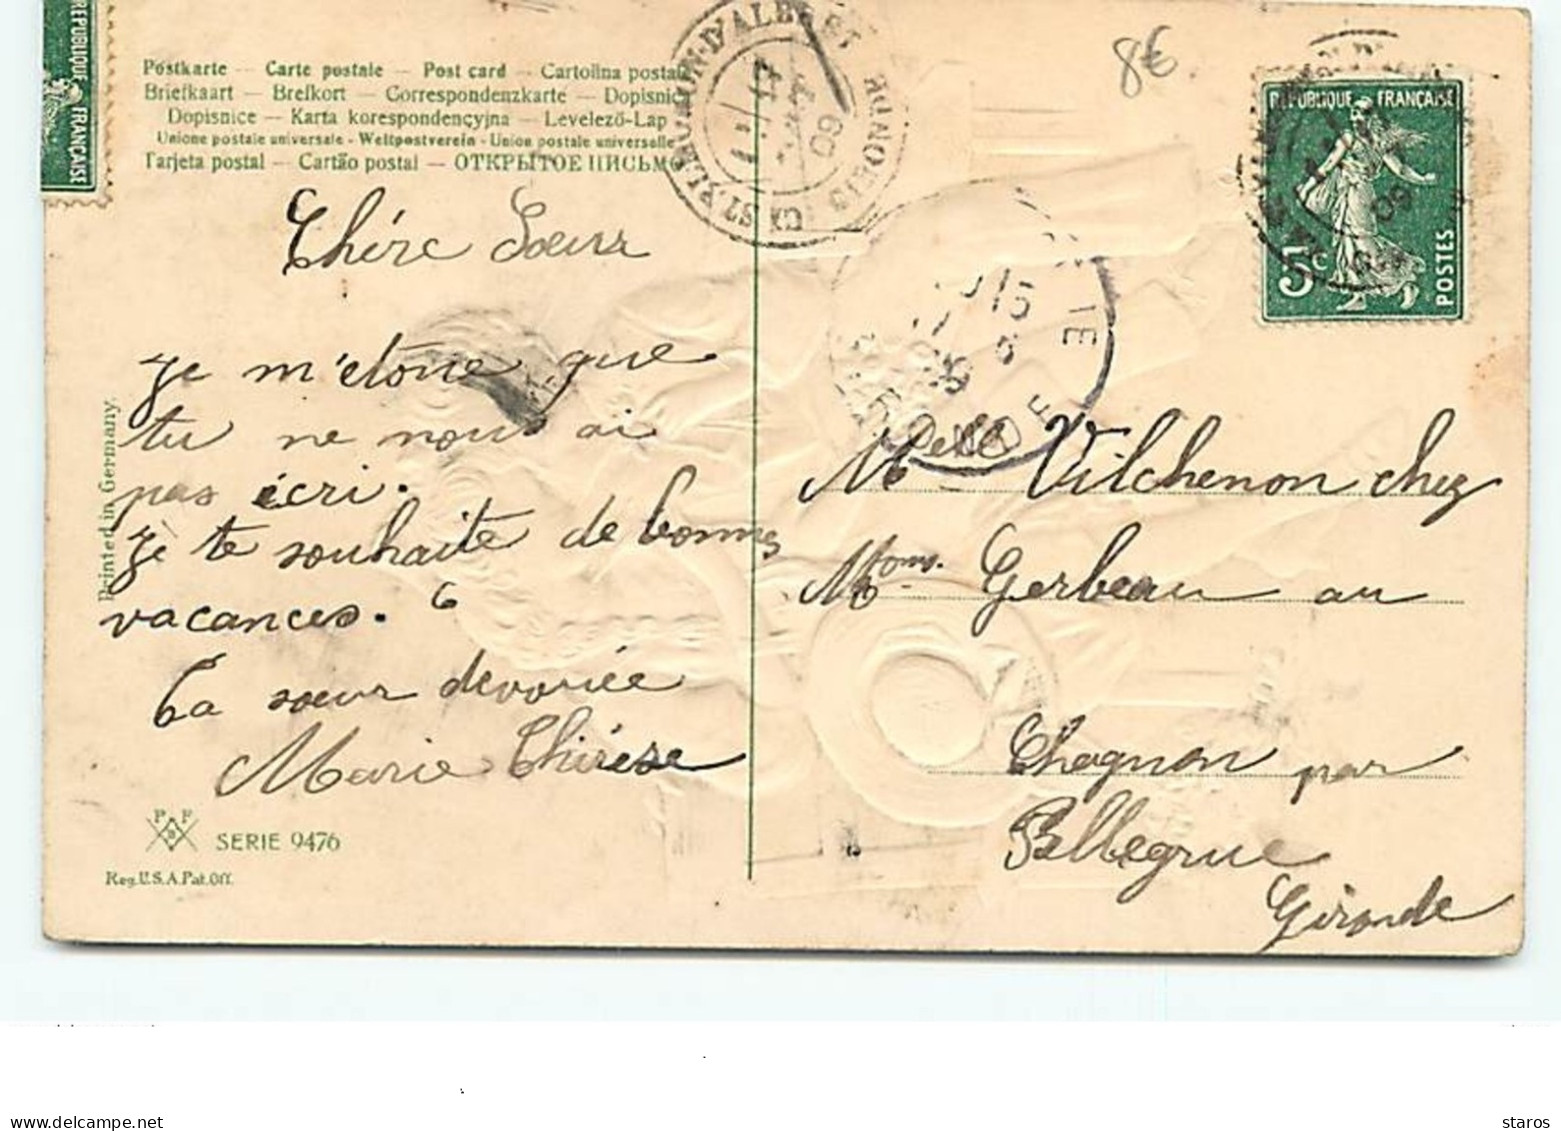 RÉPUBLIQUE FRANÇAISE
Postkarte — Carte postale — Post card — Cartolina postale
Briefkaart — Brefkort — Correspondenzkarte — Dopisnice
Dopisnice — Karta korespondencyjna — Levelező-Lap
Unione postale universale - Weltpostverein - Union postale universelle
Tarjeta postal — Cartão postal — ОТКРЫТОЕ ПИСЬМО
8€
RÉPUBLIQUE FRANÇAISE
5c
POSTES
09
GIRONDE
09
Chère Soeur
je m'étone que
tu ne nous ai
pas écri.
je te souhaite de bonnes
vacances.
Ta soeur devouée
Marie Thérèse
Melle Vilchenon chez
Mons. Gerbeau au
Chagnon par
Pellegrue
Gironde
Printed in Germany.
P F B
SERIE 9476
Reg. U.S.A. Pat. Off.
delcampe.net
staros